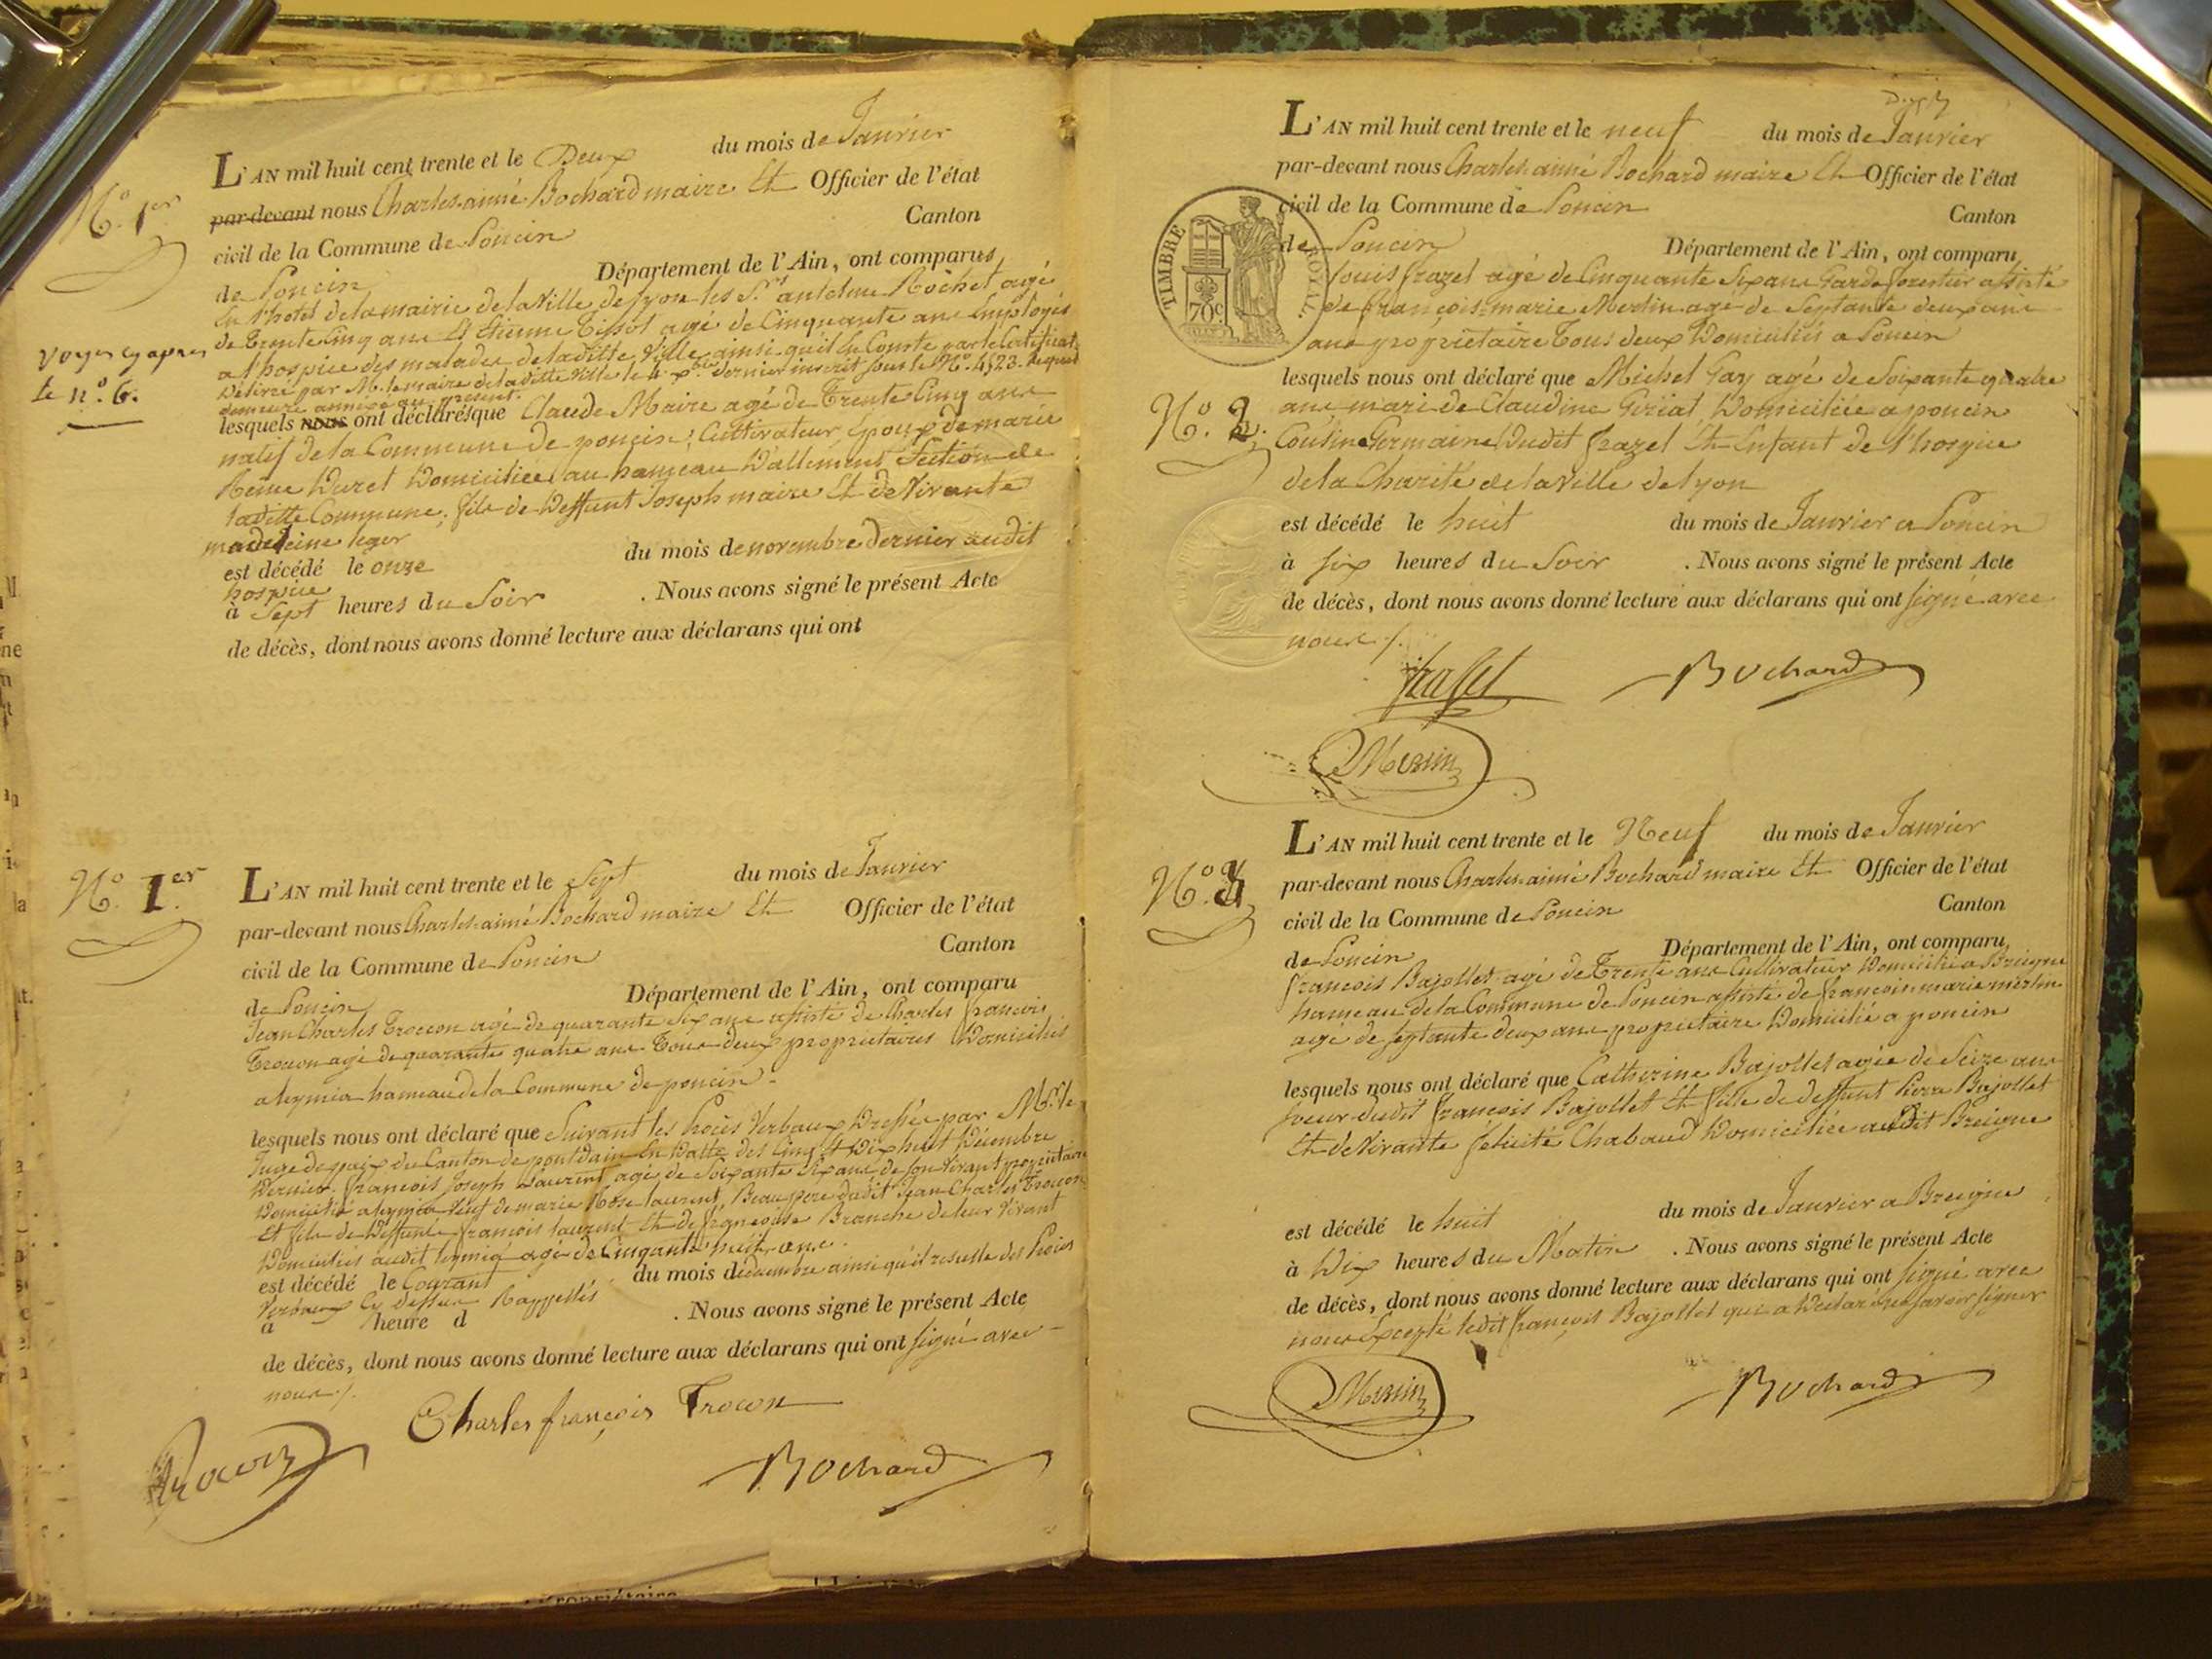 N.o 1er
L'AN mil huit cent trente et le Deux du mois de Janvier
par-devant nous Charles aimé Bochard maire Et Officier de l'état
civil de la Commune de Poncin Canton
de Poncin Département de l'Ain, ont comparus
En l'hotel de la mairie de la Ville de Lyon les Sr. antelme Rochet agé
de Trente Cinq ans Et Etienne Tissot agé de Cinquante ans Employés
a l'hospice des malades de ladite Ville ainsi qu'il En Conste par le Certificat
Délivré par M. le maire de la ditte Ville le 4 Xbre dernier inscrit sous le No. 4523. lequel
demeure annéxé au présent.
voyez cy apres
le n.o 6.
lesquels nous ont déclarés que Claude Maire agé de Trente Cinq ans
natif de la Commune de poncin, Cultivateur, Epoux de marie
Reine Duret Domiciliée au hameau D'allement Section de
laditte Commune, fils de Deffunt Joseph maire Et de Vivante
madeleine leger
est décédé le onze du mois de novembre dernier audit
hospice
à Sept heures du Soir . Nous avons signé le présent Acte
de décès, dont nous avons donné lecture aux déclarans qui ont
N.o 1.er
L'AN mil huit cent trente et le Sept du mois de Janvier
par-devant nous Charles aimé Bochard maire Et Officier de l'état
civil de la Commune de Poncin Canton
de Poncin Département de l'Ain, ont comparu
Jean Charles Troccon agé de quarante Six ans assisté de Charles françois
Trocon agé de quarante quatre ans Tous deux propriétaires Domiciliés
a leymia hameau de la Commune de poncin.
lesquels nous ont déclaré que Suivant les Procès Verbaux Dressée par Mr. le
Juge de paix du Canton de pont dain En Datte des Cinq Et Dix huit Décembre
Dernier. françois Joseph Laurent agé de Soixante Six ans de Son Vivant propriétaire
Domicilié a leymia Veuf de marie Rose laurent, Beau pere dudit Jean Charles Trocon
Et fils de Deffunts françois laurent Et de françoise Branche de leur Vivant
Domiciliés audit leymia agé de Cinquante huit ans.
est décédé le Courant du mois décembre ainsi qu'il résulte des Procès
Verbaux Cy dessus Rappellés
à heure d . Nous avons signé le présent Acte
de décès, dont nous avons donné lecture aux déclarans qui ont signé avec
nous ./.
Charles françois Trocon
Trocon
Bochard
L'AN mil huit cent trente et le neuf du mois de Janvier
par-devant nous Charles aimé Bochard maire Et Officier de l'état
civil de la Commune de Poncin Canton
de Poncin Département de l'Ain, ont comparu
TIMBRE ROYAL.
70c
Louis frazet agé de Cinquante Six ans Garde forestier assisté
de françois-marie Merlin agé de Septante deux ans
ans propriétaire Tous deux Domiciliés a Poncin
N.o 2.
lesquels nous ont déclaré que Michel Gay agé de Soixante quatre
ans mari de Claudine Gériat Domiciliée a poncin
Cousine Germaine Dudit frazet Et Enfant de l'hospice
de la Charité de la Ville de lyon
est décédé le huit du mois de Janvier a Poncin
à Six heures du Soir . Nous avons signé le présent Acte
de décès, dont nous avons donné lecture aux déclarans qui ont signé avec
nous ./.
fraset
Bochard
Merlin
N.o 3
L'AN mil huit cent trente et le Neuf du mois de Janvier
par-devant nous Charles aimé Bochard maire Et Officier de l'état
civil de la Commune de Poncin Canton
de Poncin Département de l'Ain, ont comparu
francois Bajollet agé de Trente ans Cultivateur Domicilié a Breigne
hameau de la Commune de Poncin assisté de françois marie merlin
agé de septante deux ans propriétaire Domicilié a poncin
lesquels nous ont déclaré que Catherine Bajollet agée de Seize ans
soeur dudit françois Bajollet Et fille de deffunt Pierre Bajollet
Et de Vivante félicité Chabaud Domiciliée audit Breigne
est décédé le huit du mois de Janvier a Breigne
à Dix heures du Matin . Nous avons signé le présent Acte
de décès, dont nous avons donné lecture aux déclarans qui ont signé avec
nous Excepté ledit françois Bajollet qui a Déclaré ne savoir signer
Merlin
Bochard